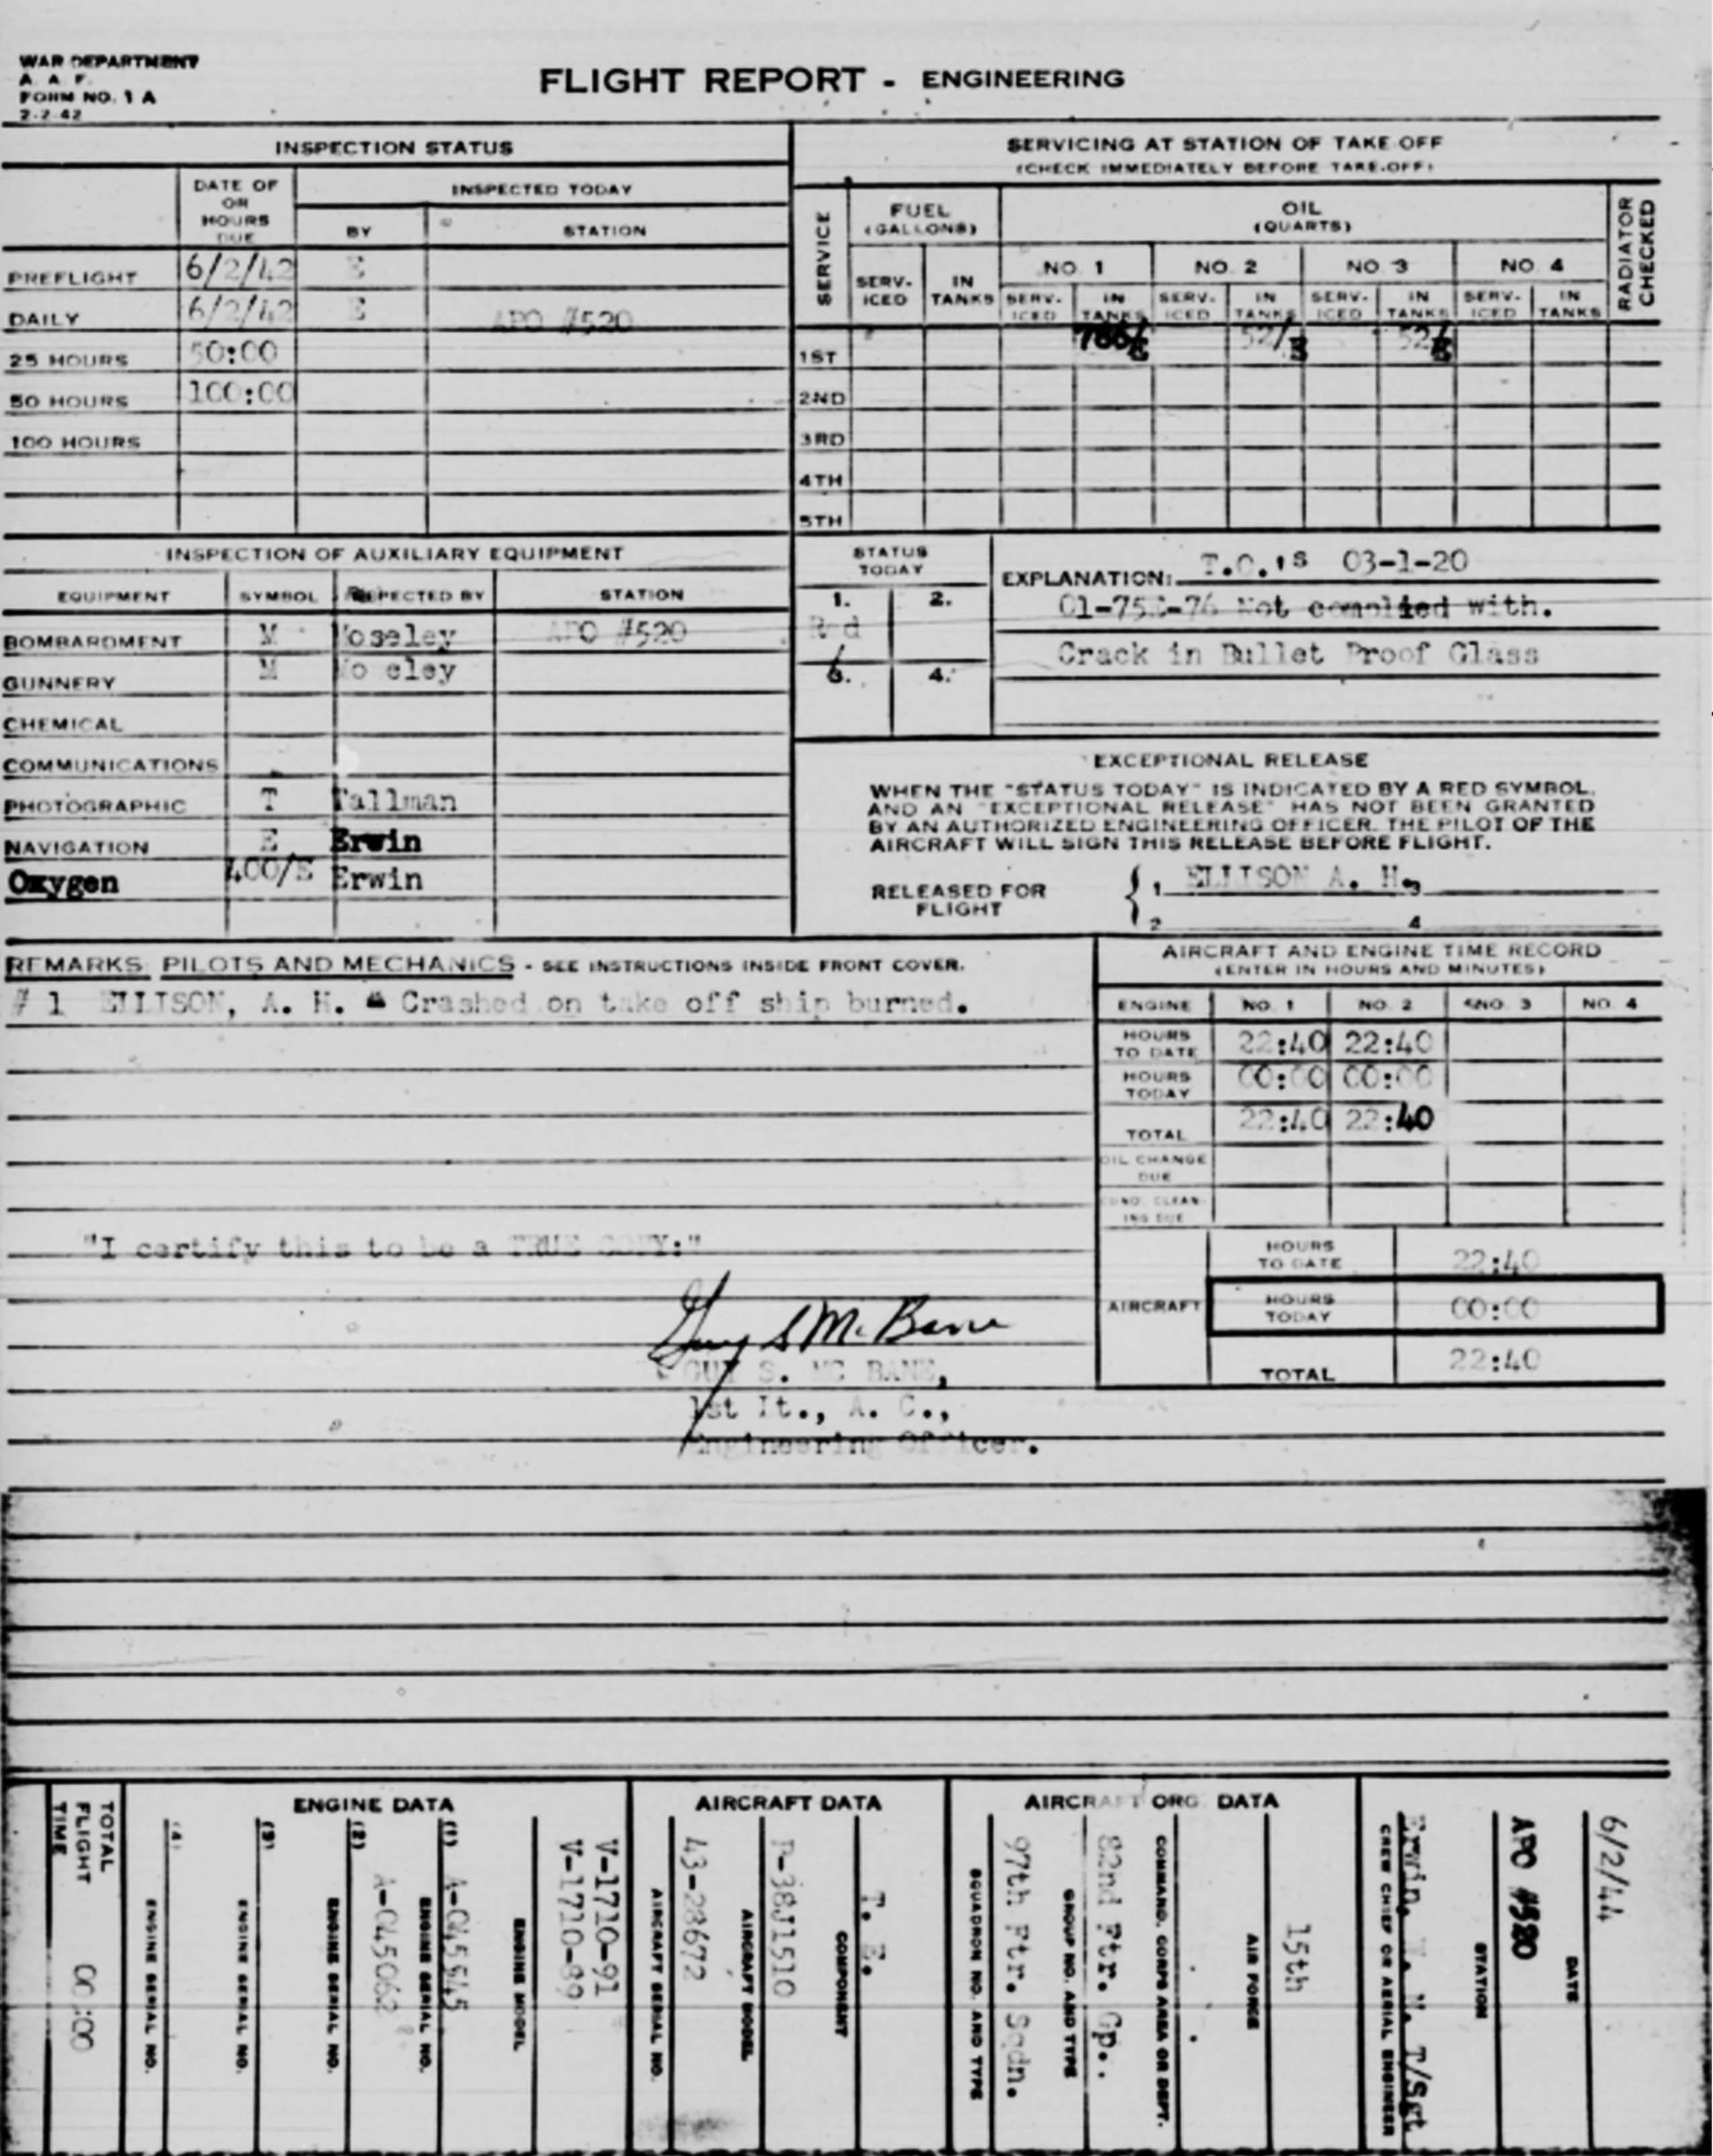 WAR DEPARTMENT
A. A. F.
FORM NO. 1 A
2-2-42
FLIGHT REPORT - ENGINEERING
INSPECTION STATUS
DATE OF OR HOURS DUE
INSPECTED TODAY
BY
STATION
PREFLIGHT 6/2/42 E
DAILY 6/2/42 E APO #520
25 HOURS 50:00
50 HOURS 100:00
100 HOURS
SERVICING AT STATION OF TAKE-OFF
(CHECK IMMEDIATELY BEFORE TAKE-OFF)
SERVICE
FUEL (GALLONS)
OIL (QUARTS)
RADIATOR CHECKED
NO. 1 NO. 2 NO. 3 NO. 4
SERV-ICED IN TANKS SERV-ICED IN TANKS SERV-ICED IN TANKS SERV-ICED IN TANKS SERV-ICED IN TANKS
1ST
2ND
3RD
4TH
5TH
INSPECTION OF AUXILIARY EQUIPMENT
EQUIPMENT SYMBOL INSPECTED BY STATION
BOMBARDMENT M Moseley APO #520
GUNNERY M Mo eley
CHEMICAL
COMMUNICATIONS
PHOTOGRAPHIC T Tallman
NAVIGATION E Erwin
Oxygen 400/E Erwin
STATUS TODAY
1. 2.
Red
3. 4.
EXPLANATION: T.O.'s 03-1-20
Not complied with.
Crack in Bullet Proof Glass
EXCEPTIONAL RELEASE
WHEN THE "STATUS TODAY" IS INDICATED BY A RED SYMBOL,
AND AN "EXCEPTIONAL RELEASE" HAS NOT BEEN GRANTED
BY AN AUTHORIZED ENGINEERING OFFICER, THE PILOT OF THE
AIRCRAFT WILL SIGN THIS RELEASE BEFORE FLIGHT.
RELEASED FOR FLIGHT
1 ELLISON A. H. 3
2 4
REMARKS: PILOTS AND MECHANICS - SEE INSTRUCTIONS INSIDE FRONT COVER.
# 1 ELLISON, A. H. - Crashed on take off ship burned.
AIRCRAFT AND ENGINE TIME RECORD
(ENTER IN HOURS AND MINUTES)
ENGINE NO. 1 NO. 2 NO. 3 NO. 4
HOURS TO DATE 22:40 22:40
HOURS TODAY 00:00 00:00
TOTAL 22:40 22:40
OIL CHANGE DUE
CUNO CLEAN-ING DUE
AIRCRAFT
HOURS TO DATE 22:40
HOURS TODAY 00:00
TOTAL 22:40
"I certify this to be a TRUE COPY:"
Guy S McBane
GUY S. MC BANE,
1st Lt., A. C.,
Engineering Officer.
6/2/44
DATE
APO #520
STATION
Erwin, T/Sgt
CREW CHIEF OR AERIAL ENGINEER
AIRCRAFT ORG. DATA
15th
AIR FORCE
COMMAND, CORPS AREA OR DEPT.
82nd Ftr. Gp.
GROUP NO. AND TYPE
97th Ftr. Sqdn.
SQUADRON NO. AND TYPE
AIRCRAFT DATA
COMPONENT
P-38J1510
AIRCRAFT MODEL
43-28672
AIRCRAFT SERIAL NO.
ENGINE DATA
V-1710-91
V-1710-89
ENGINE MODEL
(1) A-045545
ENGINE SERIAL NO.
(2) A-045062
ENGINE SERIAL NO.
(3)
ENGINE SERIAL NO.
(4)
ENGINE SERIAL NO.
TOTAL FLIGHT TIME 00:00